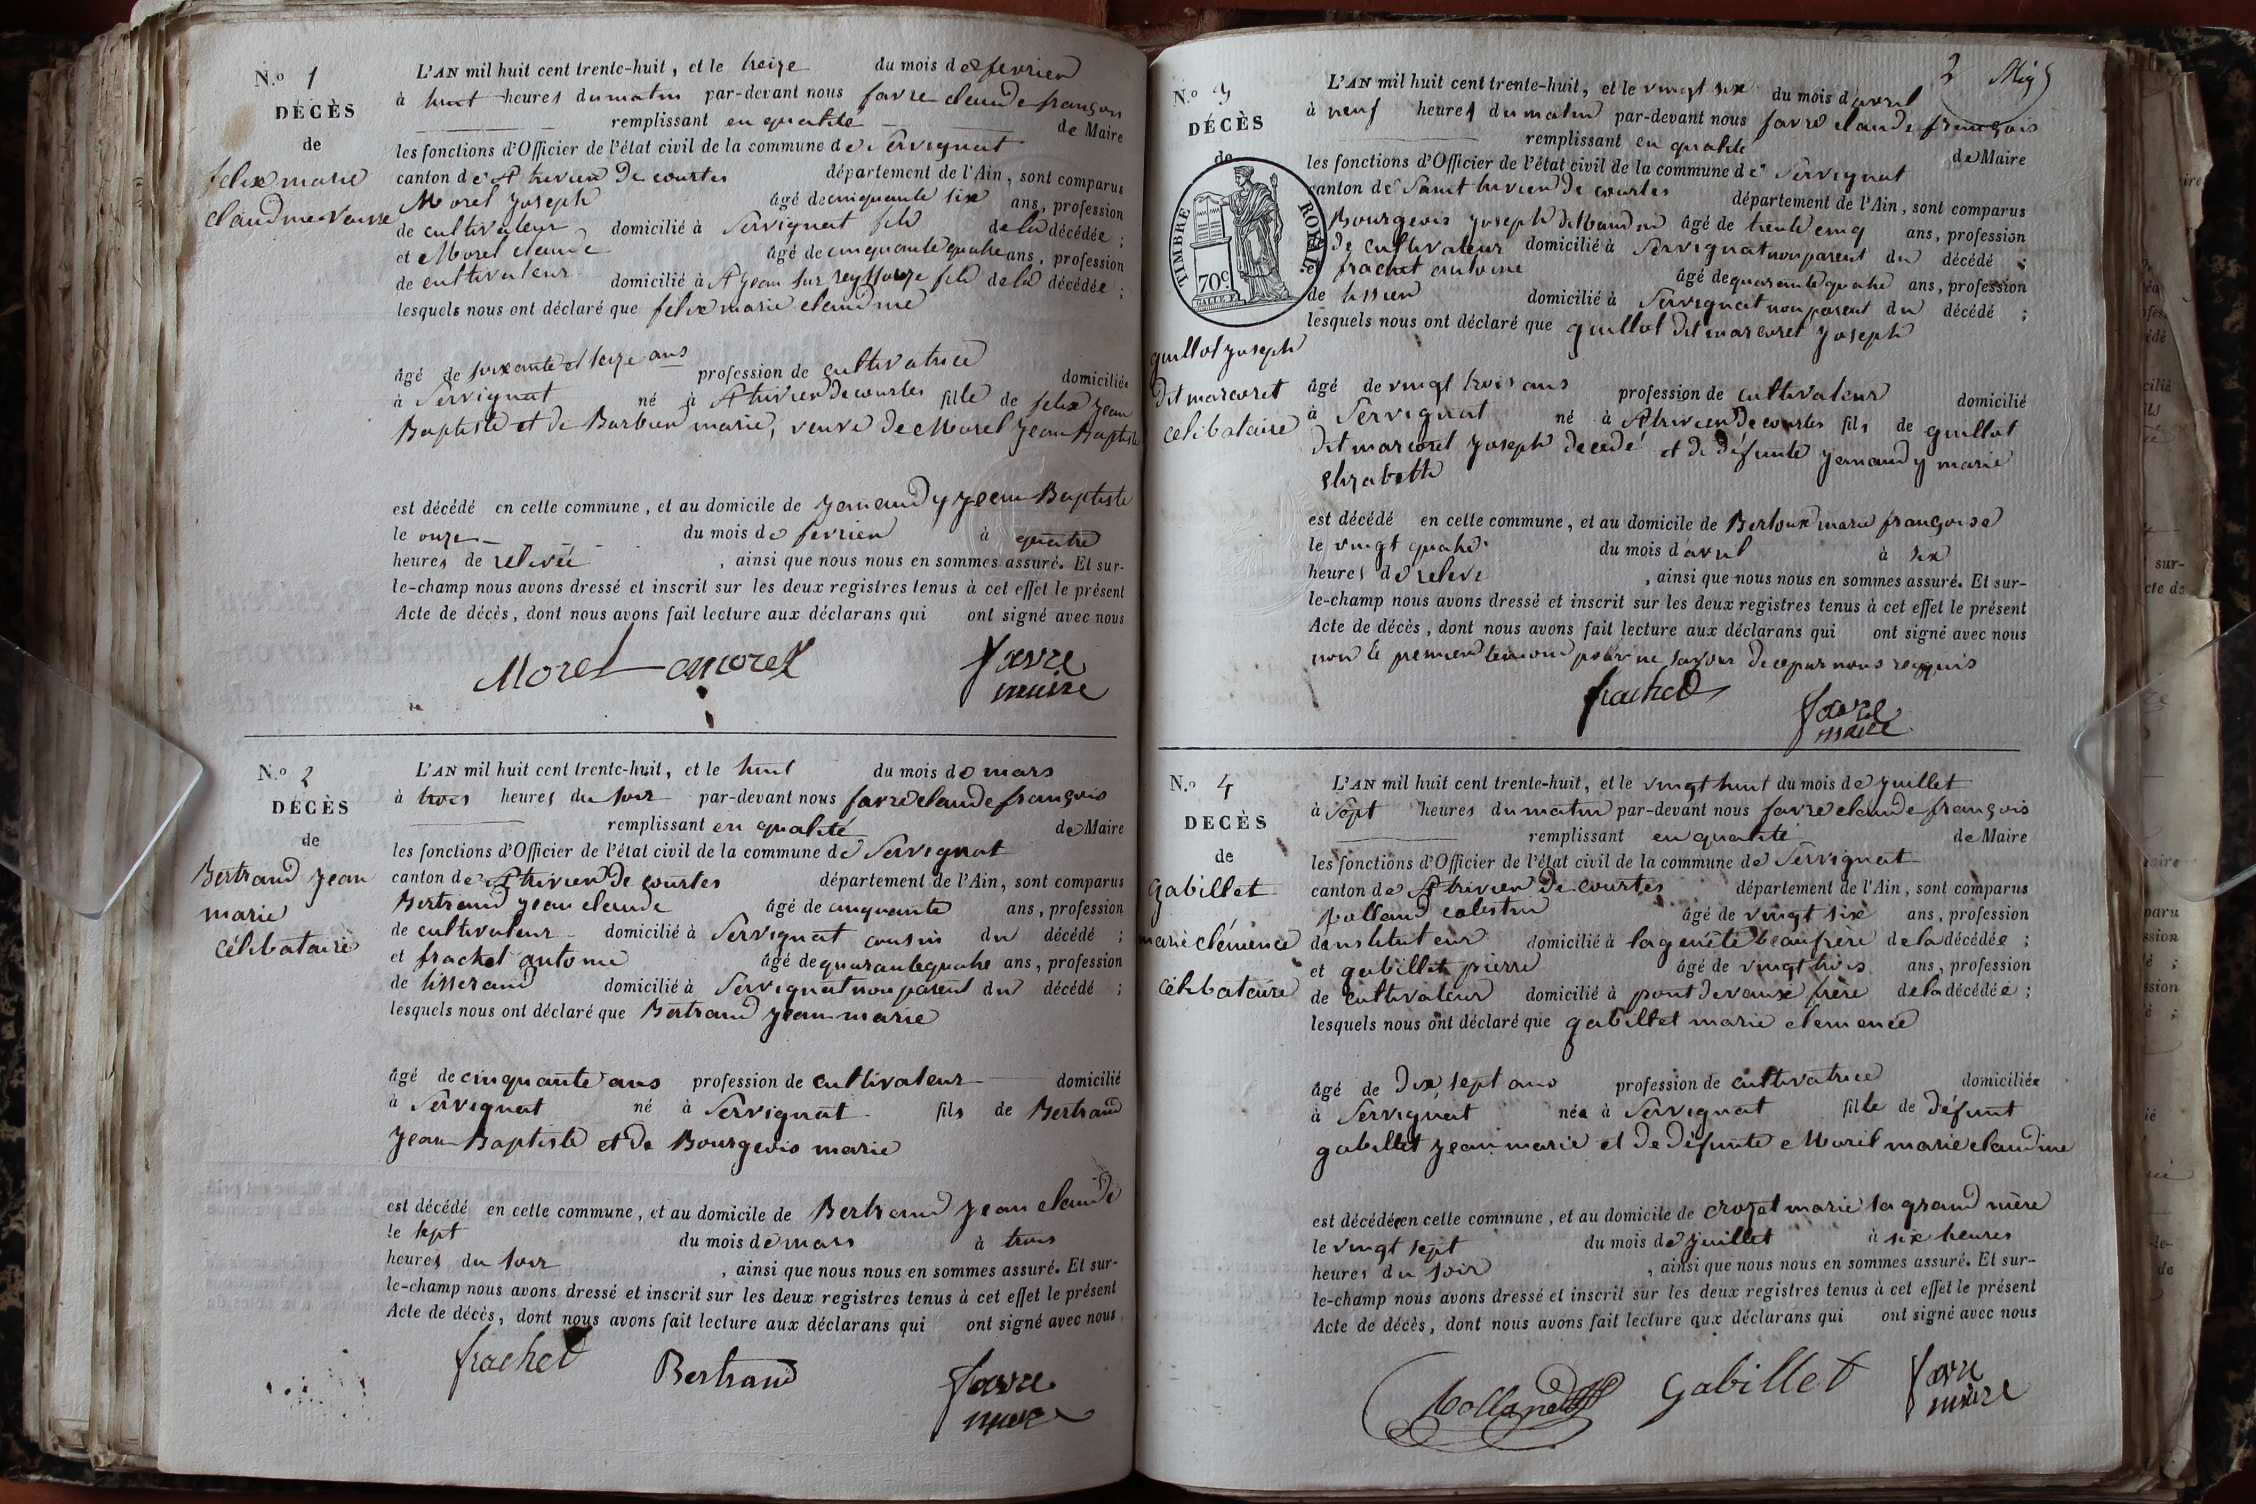 N.º 1
DÉCÈS
de
felix marie
claudine veuve
L'AN mil huit cent trente-huit, et le treize du mois de fevrier
à huit heures du matin par-devant nous favre claude françois
remplissant en qualité de Maire
les fonctions d'Officier de l'état civil de la commune de Servignat
canton de St trivier de courtes département de l'Ain, sont comparus
Morel Joseph âgé de cinquante six ans, profession
de cultivateur domicilié à Servignat fils de la décédée ;
et Morel claude âgé de cinquante quatre ans, profession
de cultivateur domicilié à St jean sur reyssouze fils de la décédée ;
lesquels nous ont déclaré que felix marie claudine
âgé de soixante et seize ans profession de cultivatrice domiciliée
à Servignat né à St trivier de courtes fille de felix jean
Baptiste et de Barbier marie, veuve de Morel Jean Baptiste
est décédé en cette commune, et au domicile de Jernaudy Jean Baptiste
le onze du mois de fevrier à quatre
heures de relevée , ainsi que nous nous en sommes assuré. Et sur-
le-champ nous avons dressé et inscrit sur les deux registres tenus à cet effet le présent
Acte de décès, dont nous avons fait lecture aux déclarans qui ont signé avec nous
Morel Morel favre
maire
N.º 2
DÉCÈS
de
Bertrand Jean
marie
célibataire
L'AN mil huit cent trente-huit, et le huit du mois de mars
à trois heures du soir par-devant nous favre claude françois
remplissant en qualité de Maire
les fonctions d'Officier de l'état civil de la commune de Servignat
canton de St trivier de courtes département de l'Ain, sont comparus
Bertrand Jean claude âgé de cinquante ans, profession
de cultivateur domicilié à Servignat cousin du décédé ;
et frachet antoine âgé de quarante quatre ans, profession
de tisserand domicilié à Servignat non parent du décédé ;
lesquels nous ont déclaré que Bertrand Jean marie
âgé de cinquante ans profession de cultivateur domicilié
à Servignat né à Servignat fils de Bertrand
Jean Baptiste et de Bourgeois marie
est décédé en cette commune, et au domicile de Bertrand Jean claude
le sept du mois de mars à trois
heures du soir , ainsi que nous nous en sommes assuré. Et sur-
le-champ nous avons dressé et inscrit sur les deux registres tenus à cet effet le présent
Acte de décès, dont nous avons fait lecture aux déclarans qui ont signé avec nous
frachet Bertrand favre
maire
2
N.º 3
DÉCÈS
de
TIMBRE ROYAL
70c
guillot Joseph
dit marcoret
celibataire
L'AN mil huit cent trente-huit, et le vingt six du mois d'avril
à neuf heures du matin par-devant nous favre claude françois
remplissant en qualité de Maire
les fonctions d'Officier de l'état civil de la commune de Servignat
canton de Saint trivier de courtes département de l'Ain, sont comparus
Bourgeois Joseph dit baudin âgé de trente cinq ans, profession
de cultivateur domicilié à Servignat non parent du décédé ;
et frachet antoine âgé de quarante quatre ans, profession
de tissier domicilié à Servignat non parent du décédé ;
lesquels nous ont déclaré que guillot dit marcoret Joseph
âgé de vingt trois ans profession de cultivateur domicilié
à Servignat né à St trivier de courtes fils de guillot
dit marcoret Joseph décédé et de défunte Jernaudy marie
elizabeth
est décédé en cette commune, et au domicile de Berloux marie françoise
le vingt quatre du mois d'avril à six
heures de relevé , ainsi que nous nous en sommes assuré. Et sur-
le-champ nous avons dressé et inscrit sur les deux registres tenus à cet effet le présent
Acte de décès, dont nous avons fait lecture aux déclarans qui ont signé avec nous
non le premier temoin pour ne savoir de ce par nous requis
frachet favre
maire
N.º 4
DÉCÈS
de
gabillet
marie clémence
célibataire
L'AN mil huit cent trente-huit, et le vingt huit du mois de Juillet
à sept heures du matin par-devant nous favre claude françois
remplissant en qualité de Maire
les fonctions d'Officier de l'état civil de la commune de Servignat
canton de St trivier de courtes département de l'Ain, sont comparus
bolland celestin âgé de vingt six ans, profession
d'instituteur domicilié à lagenête beau frère de la décédée ;
et gabillet pierre âgé de vingt trois ans, profession
de cultivateur domicilié à pont de vaux frère de la décédée ;
lesquels nous ont déclaré que gabillet marie clemence
âgé de dix sept ans profession de cultivatrice domiciliée
à Servignat née à Servignat fille de défunt
gabillet Jean marie et de défunte Morel marie claudine
est décédée en cette commune, et au domicile de crozet marie sa grand mère
le vingt sept du mois de Juillet à six heures
heures du soir , ainsi que nous nous en sommes assuré. Et sur-
le-champ nous avons dressé et inscrit sur les deux registres tenus à cet effet le présent
Acte de décès, dont nous avons fait lecture aux déclarans qui ont signé avec nous
bolland Gabillet favre
maire